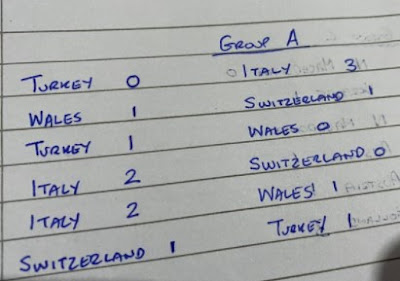 Group A
Turkey 0 Italy 3
Wales 1 Switzerland 1
Turkey 1 Wales 0
Italy 2 Switzerland 0
Italy 2 Wales 1
Switzerland 1 Turkey 1